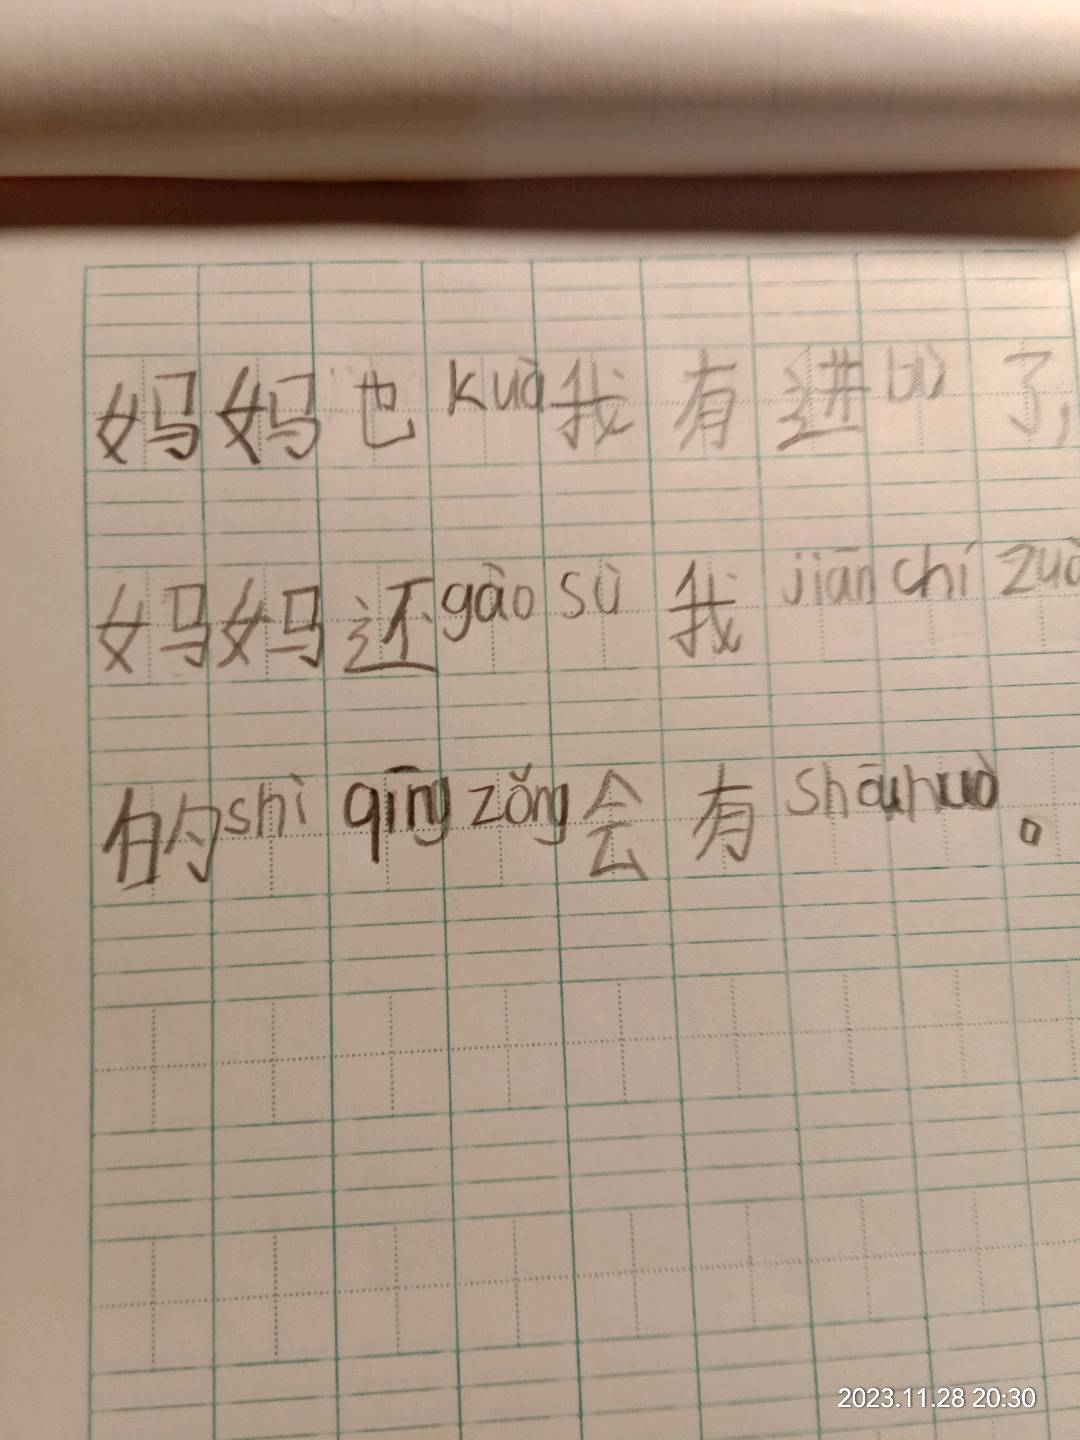 妈妈也kuà我有进bù了，
妈妈还gào sù我jiān chí zuò
的shì qīng zǒng会有shōu huò。
2023.11.28 20:30